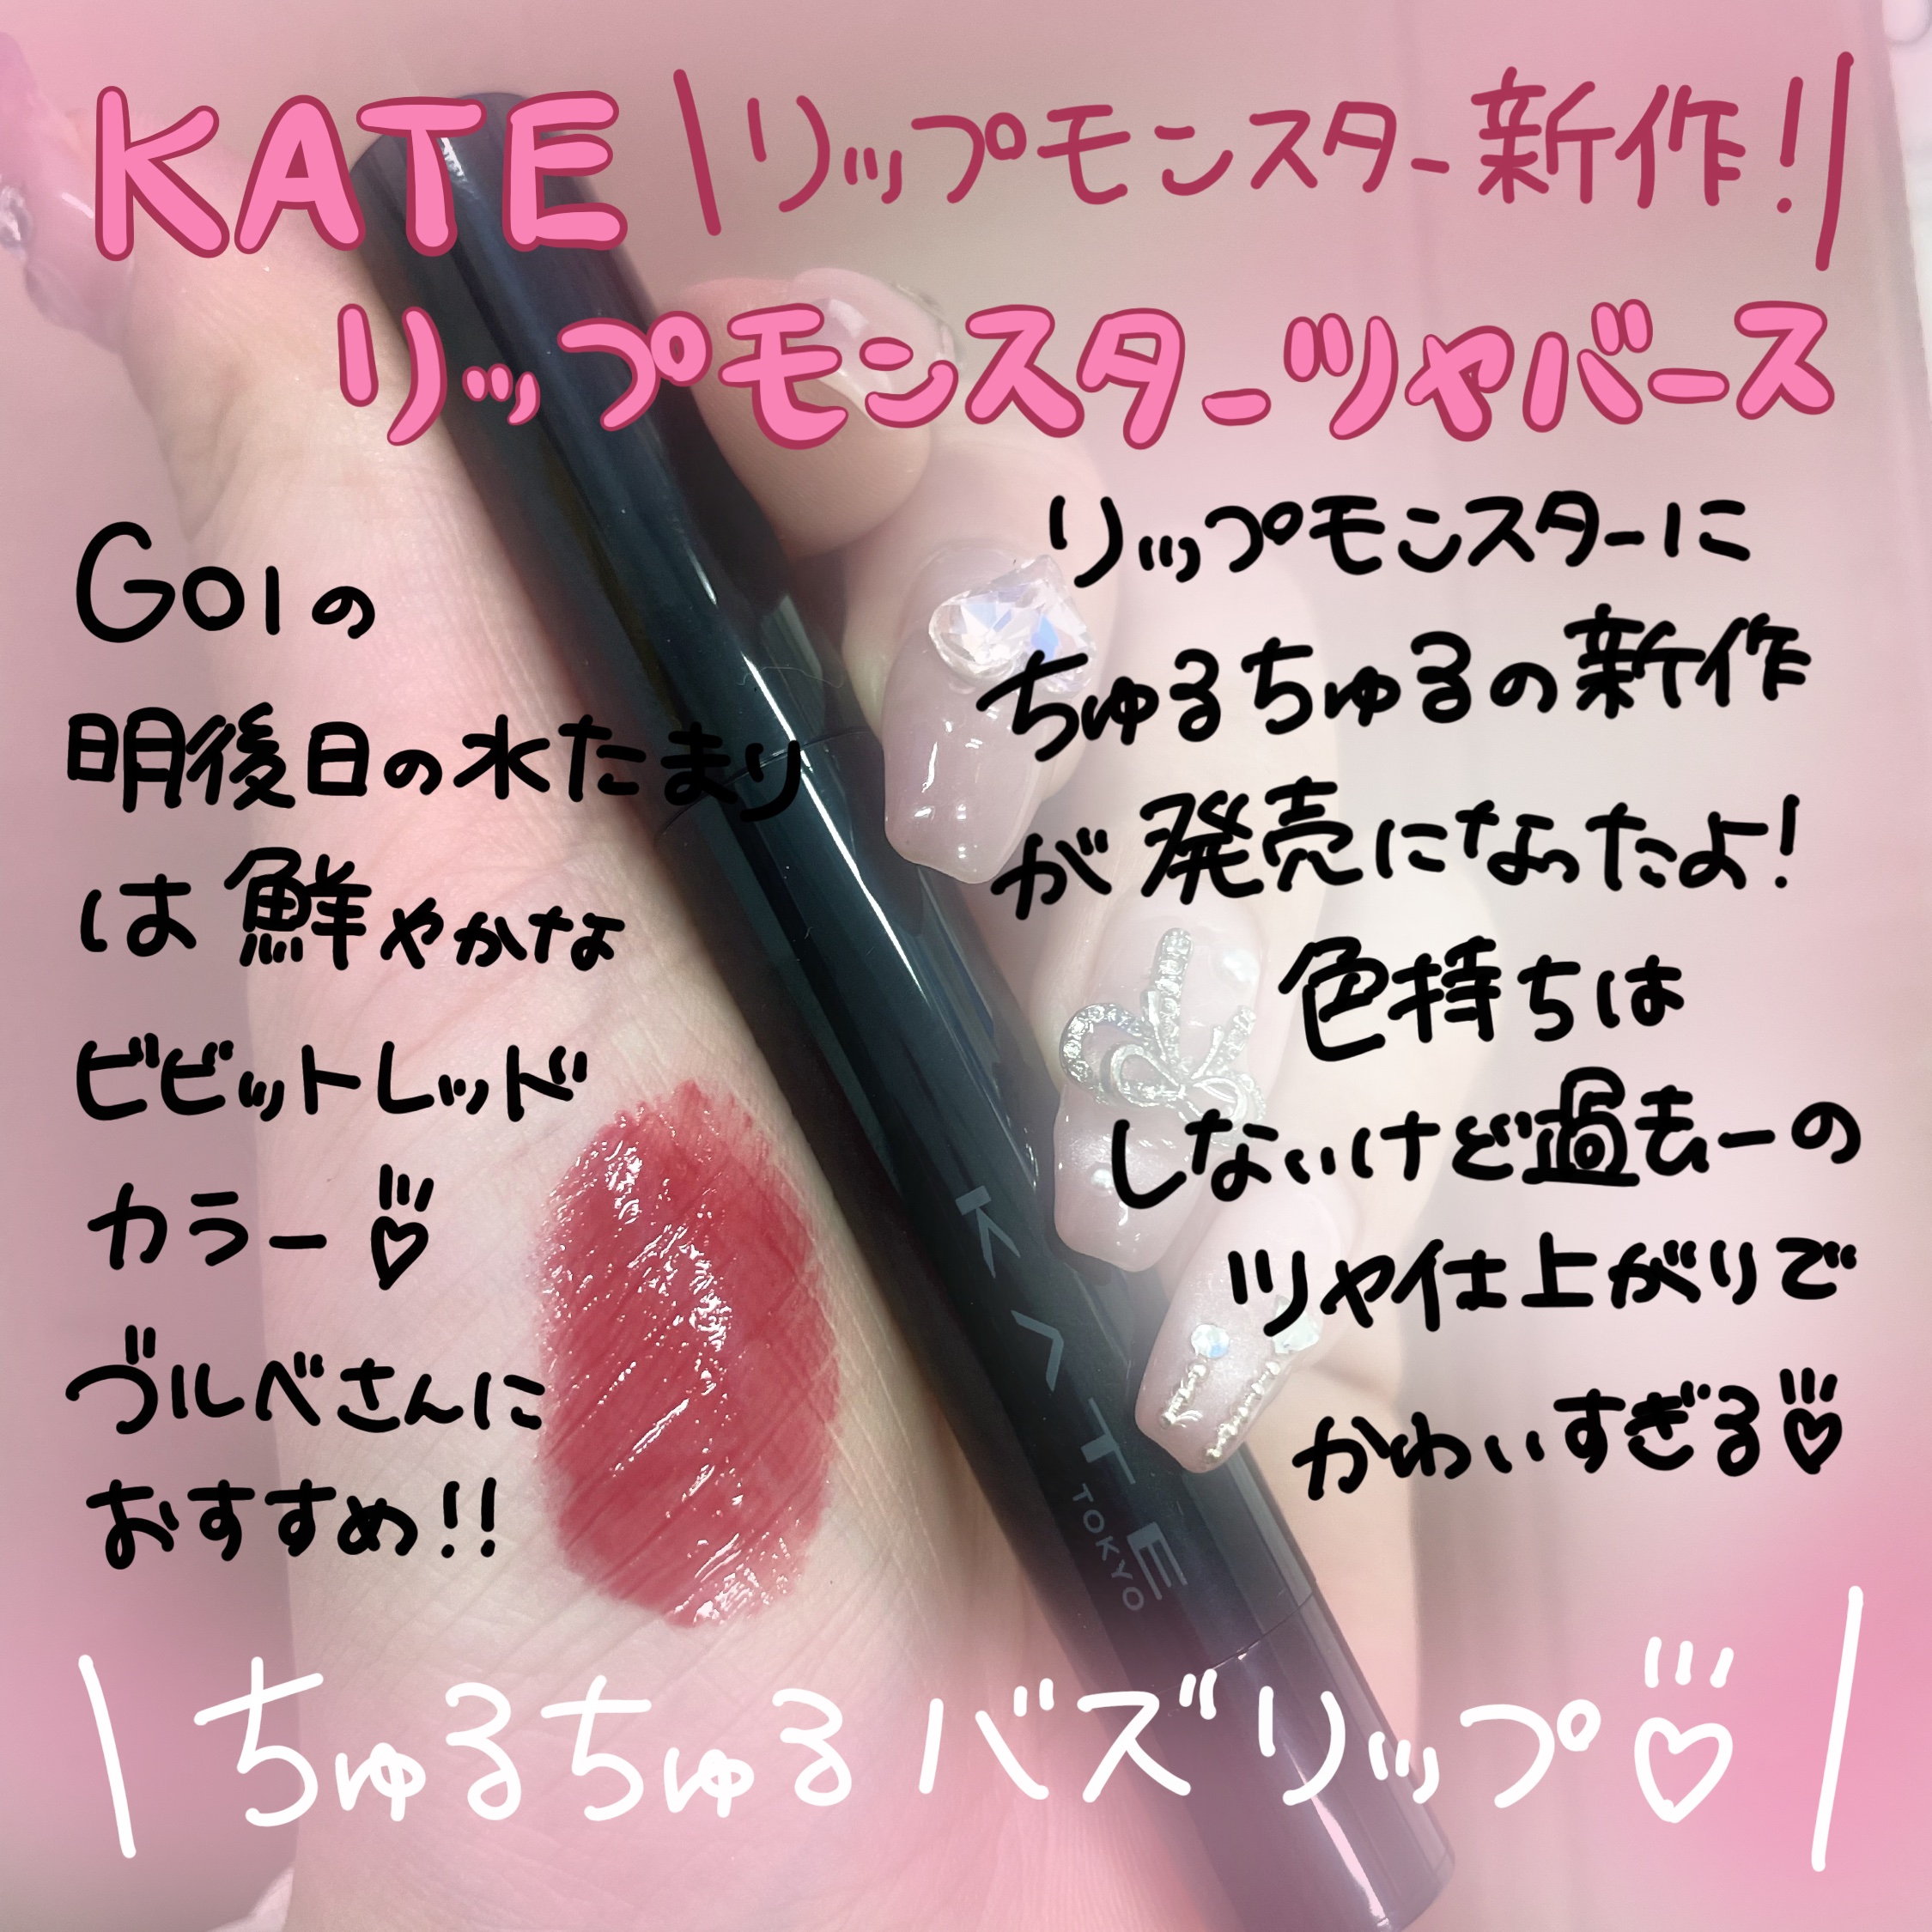 KATE \リップモンスター新作!/
リップモンスターツヤバース
G01の
明後日の水たまり
は鮮やかな
ビビットレッド
カラー♡
ブルベさんに
おすすめ!!
リップモンスターに
ちゅるちゅるの新作
が発売になったよ!
色持ちは
しないけど過去一の
ツヤ仕上がりで
かわいすぎる♡
KATE
TOKYO
\ちゅるちゅるバズリップ♡/